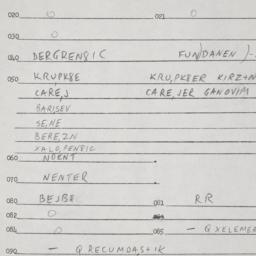 020 O 021 O
030 O
040 DERGRENSIC FUNDANEN
050 KRUPKBE KRUPKBER KIRZ+N
CARE,J CARE,JER GANOVIM
BARISEV
SENE
BERE,ZN
XALO,PENSIC
060 NDENT
070 NENTER
080 BEJBE 081 RR
082 O
084 O 085 - Q XELEMEE
090 - Q RECUMDAS+IK